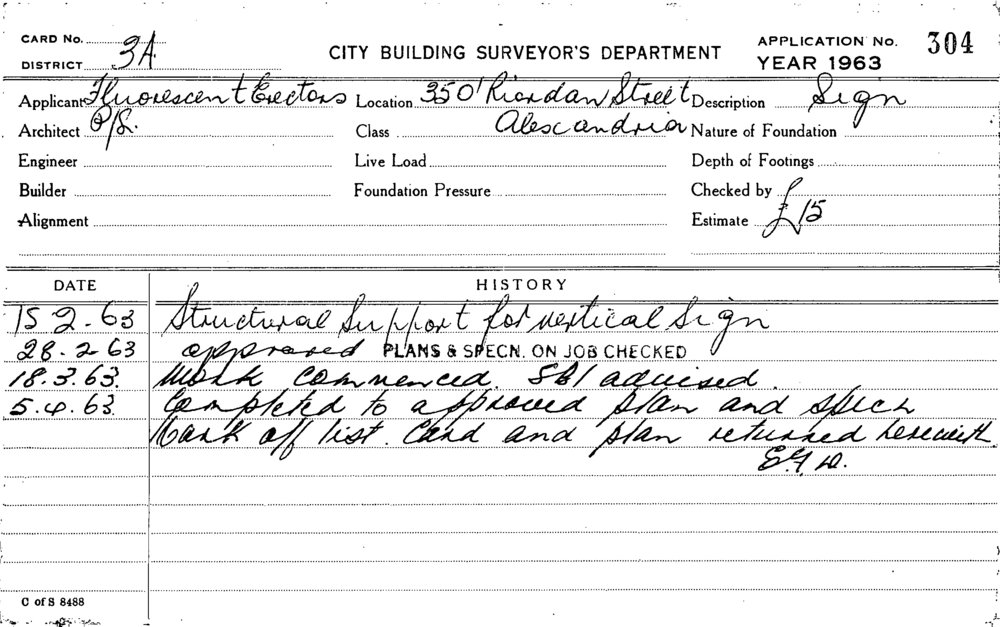 CARD No.
DISTRICT 3A
CITY BUILDING SURVEYOR'S DEPARTMENT
APPLICATION No. 304
YEAR 1963
Applicant Fluorescent Erectors Location 350' Riordan Street Description Sign
Architect P/L. Class Alexcandria Nature of Foundation
Engineer Live Load Depth of Footings
Builder Foundation Pressure Checked by
Alignment Estimate £15
DATE HISTORY
15 2.63 Structural Support for vertical Sign
28.2-63 approved PLANS & SPECN. ON JOB CHECKED
18.3.63. Work commenced. SBI advised.
5.4.63. Completed to approved plan and specn
Mark off list. Card and plan returned herewith.
C of S 8488